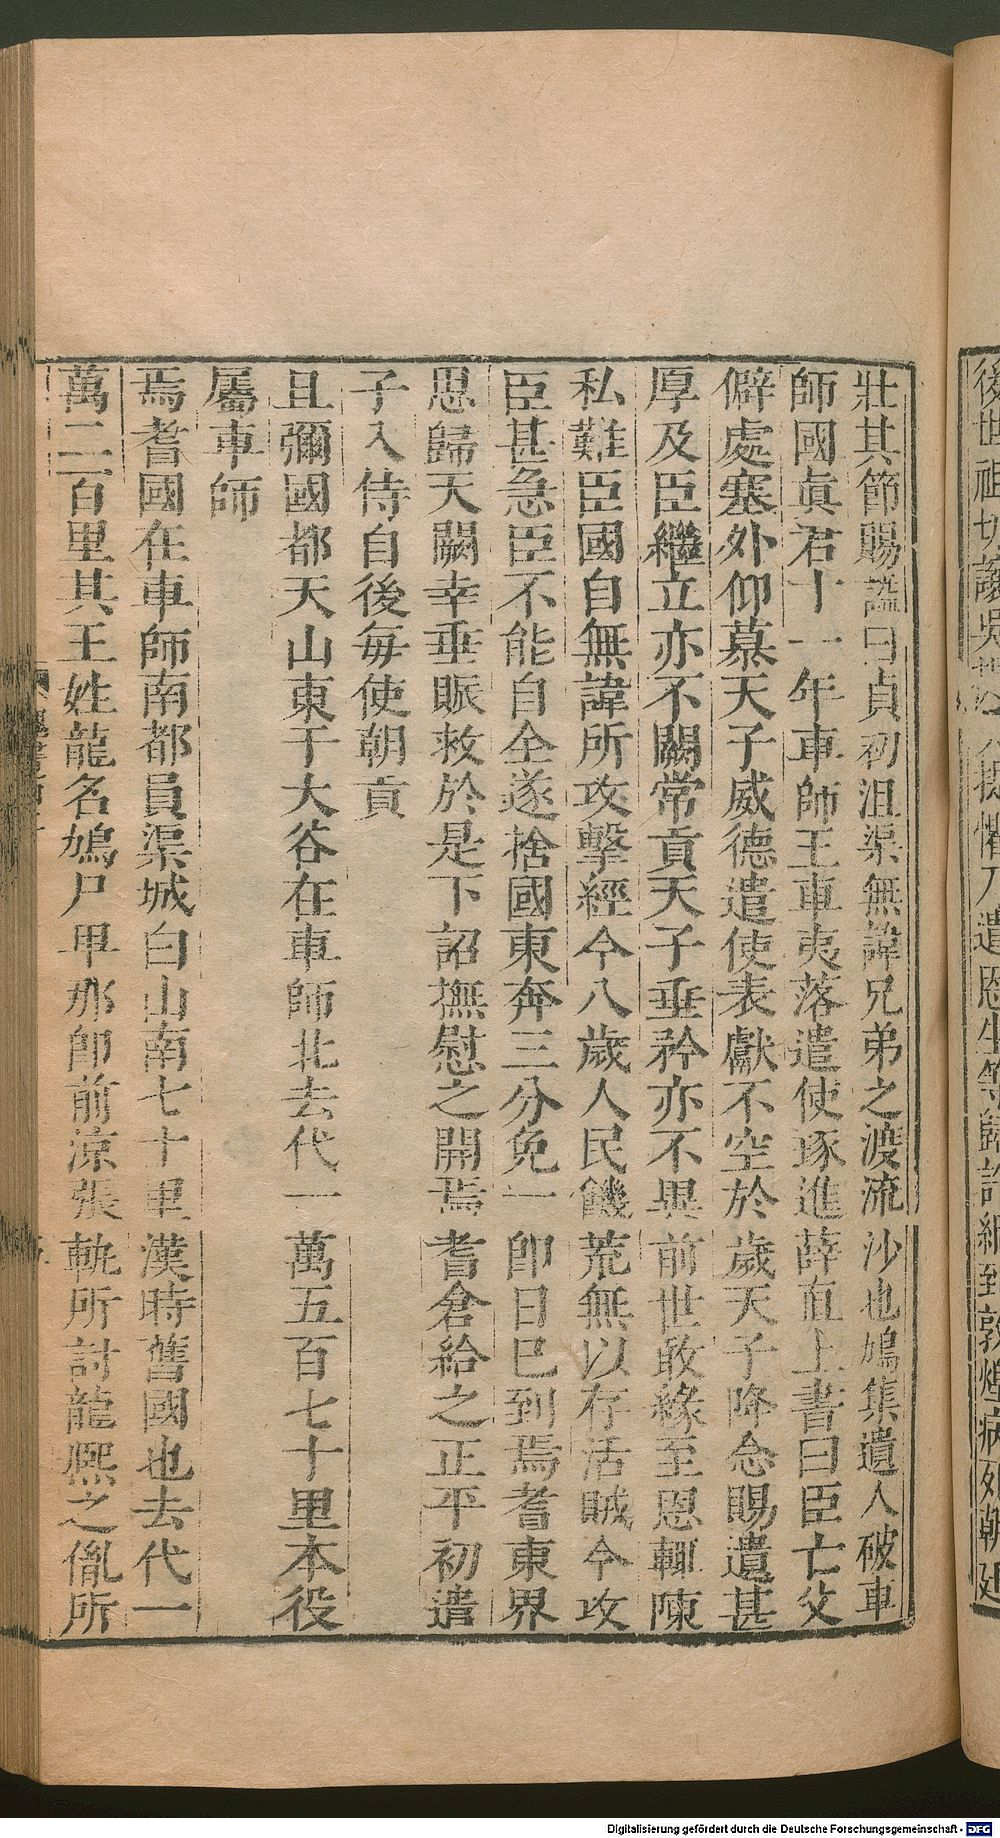 壯其節賜諡曰貞初沮渠無諱兄弟之渡流沙也鳩集遺人破車
師國眞君十一年車師王車夷落遣使琢進薛直上書曰臣亡父
僻處塞外仰慕天子威德遣使表獻不空於歲天子降念賜遺甚
厚及臣繼立亦不闕常貢天子垂矜亦不異前世敢緣至恩輒陳
私難臣國自無諱所攻擊經今八歲人民饑荒無以存活賊今攻
臣甚急臣不能自全遂捨國東奔三分免一卽日巳到焉耆東界
思歸天闕幸垂賑救於是下詔撫慰之開焉耆倉給之正平初遣
子入侍自後每使朝貢
且彌國都天山東于大谷在車師北去代一萬五百七十里本役
屬車師
焉耆國在車師南都員渠城白山南七十里漢時舊國也去代一
萬二百里其王姓龍名鳩尸卑那卽前涼張軌所討龍熙之胤所
Digitalisierung gefördert durch die Deutsche Forschungsgemeinschaft - DFG